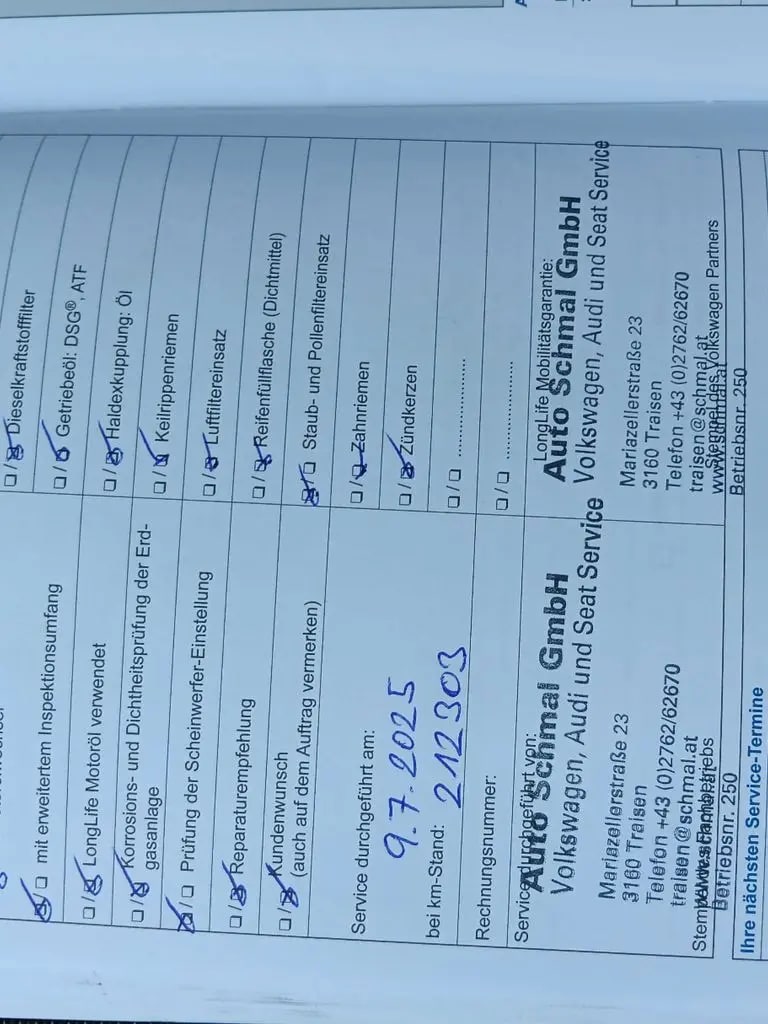 ☒/☐ mit erweitertem Inspektionsumfang
☐/☒ LongLife Motoröl verwendet
☐/☒ Korrosions- und Dichtheitsprüfung der Erd-
gasanlage
☒/☐ Prüfung der Scheinwerfer-Einstellung
☐/☒ Reparaturempfehlung
☐/☒ Kundenwunsch
(auch auf dem Auftrag vermerken)
Service durchgeführt am:
9.7.2025
bei km-Stand: 212303
Rechnungsnummer:
Service durchgeführt von:
Auto Schmal GmbH
Volkswagen, Audi und Seat Service
Mariazellerstraße 23
3160 Traisen
Telefon +43 (0)2762/62670
traisen@schmal.at
Betriebsnr. 250
☐/☒ Dieselkraftstofffilter
☐/☒ Getriebeöl: DSG®, ATF
☐/☒ Haldexkupplung: Öl
☐/☒ Keilrippenriemen
☐/☒ Luftfiltereinsatz
☐/☒ Reifenfüllflasche (Dichtmittel)
☒/☐ Staub- und Pollenfiltereinsatz
☐/☒ Zahnriemen
☐/☒ Zündkerzen
☐/☐ ....................
☐/☐ ....................
LongLife Mobilitätsgarantie:
Auto Schmal GmbH
Volkswagen, Audi und Seat Service
Mariazellerstraße 23
3160 Traisen
Telefon +43 (0)2762/62670
traisen@schmal.at
Stempel des Volkswagen Partners
www.schmal.at
Betriebsnr. 250
Ihre nächsten Service-Termine